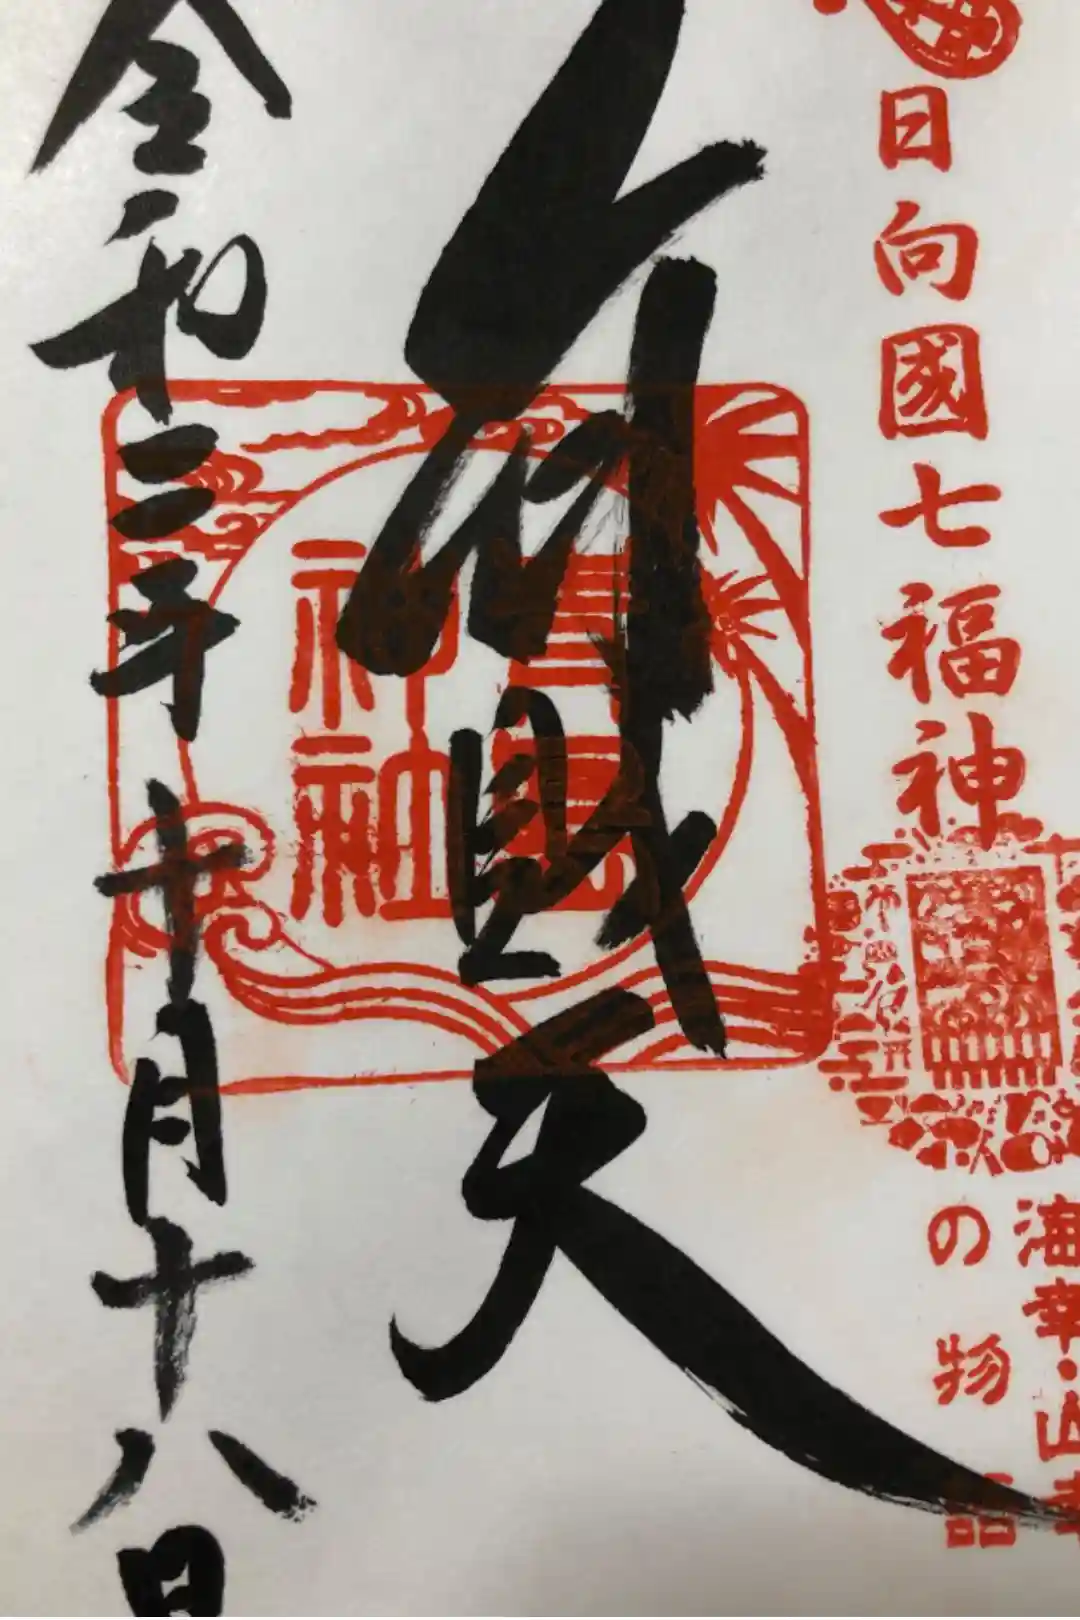 日向國七福神
海幸・山幸
の物語
辨財天
青島
神社
令和三年十月十八日